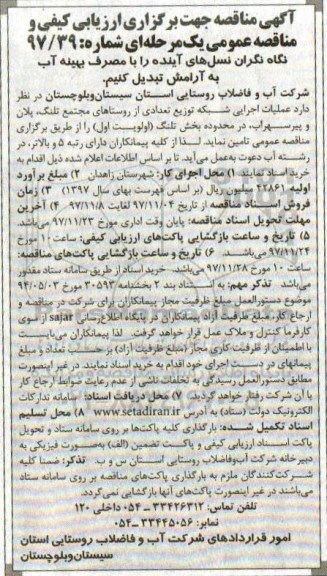 آگهی مناقصه جهت برگزاری ارزیابی کیفی و
مناقصه عمومی یک مرحله‌ای شماره: ۹۷/۳۹
نگاه نگران نسل‌های آینده را با مصرف بهینه آب
به آرامش تبدیل کنیم.
شرکت آب و فاضلاب روستایی استان سیستان‌وبلوچستان در نظر
دارد عملیات اجرایی شبکه توزیع تعدادی از روستاهای مجتمع تلنگ، پلان
و پیرسهراب، در محدوده بخش تلنگ (اولویت اول) را از طریق برگزاری
مناقصه عمومی تامین نماید. لـذا از کلیه پیمانکاران دارای رتبه ۵ و بالاتر، در
رشـته آب دعوت به‌عمل می‌آید تا بر اساس اطلاعات اعلام شده ذیل اقدام به
خرید اسناد نمایند. ۱) محل اجرای کار: شهرستان زاهدان ۲) مبلغ برآورد
اولیه ۲۲۸۶۱ میلیون ریال (بر اساس فهرست بهای سال ۱۳۹۷) ۳) زمان
فروش اسـناد مناقصه از تاریخ ۹۷/۱۱/۰۴ لغایت ۹۷/۱۱/۸ ۴) آخرین
مهلت تحویل اسناد مناقصه: پایان وقت اداری مورخ ۹۷/۱۱/۲۳ می‌باشد.
۵) تاریخ و ساعت بازگشایی پاکت‌های ارزیابی کیفی: ساعت ۱۰ مورخ
۹۷/۱۱/۲۴ می‌باشـد. ۶) تاریخ و ساعت بازگشایی پاکت‌های مناقصه:
ساعت ۱۰ مورخ ۹۷/۱۱/۲۸ می‌باشد. خرید اسناد از طریق سامانه ستاد مقدور
می‌باشد تذکر مهم: به اسـتناد بند ۲ بخشنامه ۳۰۵۹۳ مورخ ۹۴/۰۵/۰۳
موضوع دستورالعمل مبلغ ظرفیت مجاز پیمانکاران برای شرکت در مناقصه و
ارجاع کار، مبلغ ظرفیت آزاد پیمانکاران در پایگاه اطلاع‌رسانی sajar از سوی
کارفرما کنترل و ملاک عمل قرار خواهد گرفت. لذا پیمانکاران می‌بایسـت
با اطمینـان از ظرفیـت کاری مجاز (مبلغ ظرفیت آزاد) بر حسـب تعداد و مبلغ
پیمانهای در دست اجرای خود اقدام به خرید اسناد نمایند. در غیر اینصورت
مطابق دستورالعمل رسیدگی به تخلفات ناشی از عدم رعایت ضوابط ارجاع کار
با آن شرکت رفتار خواهد گردید. ۷) محل دریافت اسناد: سامانه تدارکات
الکترونیک دولت (ستاد) به آدرس www.setadiran.ir ۸) محل تسلیم
اسناد تکمیل شـده: بارگذاری کلیه پاکت‌ها بر روی سامانه ستاد و تحویل
پاکت اسـناد ارزیابی کیفی و پاکت تضمین (الف) بصـورت فیزیکی به
دبیرخانه شرکت آب‌وفاضلاب روستایی استان س و ب. تذکر: ضمنا کلیه
شـرکت‌کنندگان ملزم به بارگذاری پاکت‌های مناقصه بر روی سامانه ستاد
می‌باشند در غیر اینصورت پاکت‌های آنها بازگشایی نمی‌گردد.
تلفن تماس: ۳۳۴۲۶۳۱۲ ـ ۰۵۴ داخلی ۱۲۰
نمابر: ۳۳۴۴۵۰۵۶ ـ ۰۵۴
امور قراردادهای شرکت آب و فاضلاب روستایی استان
سیستان‌وبلوچستان